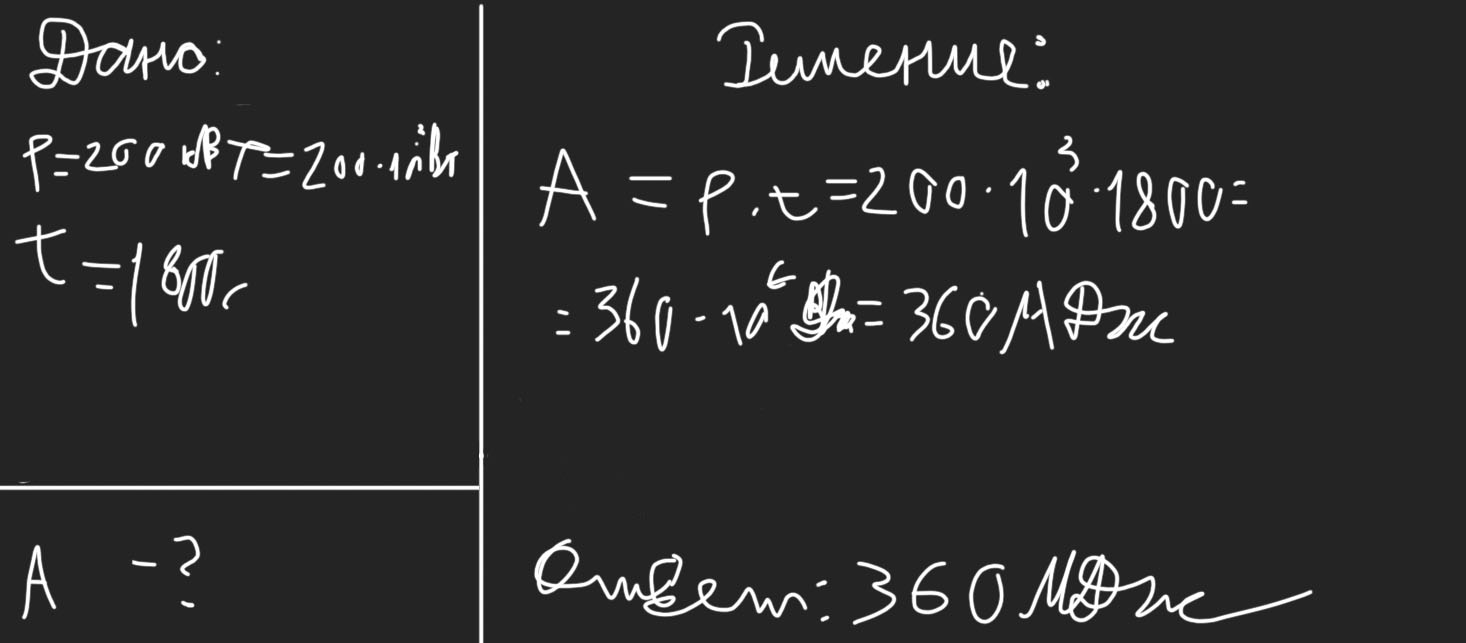 Дано:
P=200 кВт=200·10³Вт
t=1800с
A - ?
Решение:
A = P·t=200·10³·1800=
=360·10⁶ Дж=360МДж
Ответ: 360МДж